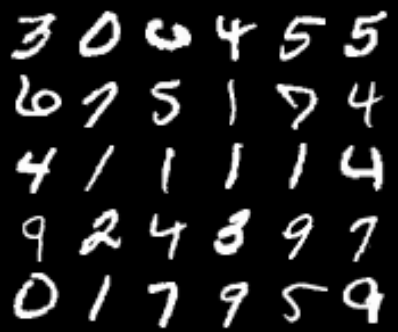 3 0 0 4 5 5
6 7 5 1 7 4
4 1 1 1 1 4
9 2 4 3 9 7
0 1 7 9 5 9